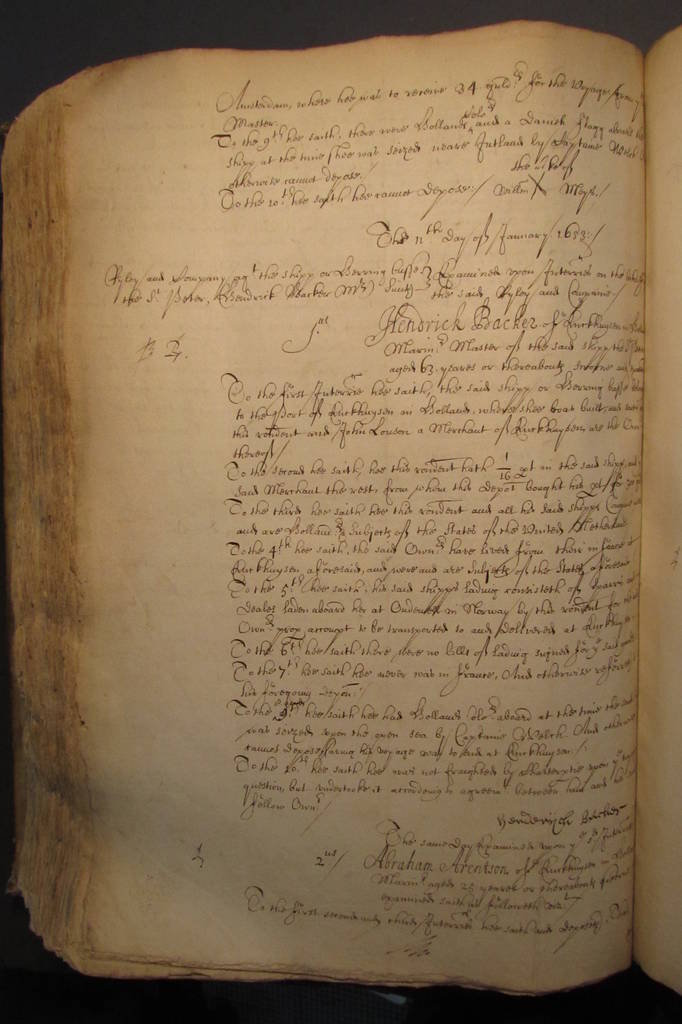 Amsterdam, where hee was to receive 24 guld.rs for the Voyage, from
Master.
To the 9th hee saith, there were Hollands Colo.rs and a Danish flagg aboard the
shipp at the time shee was seized neare Jutland by Captaine Welch
otherwise cannot depose./
To the 10.th hee saith hee cannot depose:/ Willm X Meys./
the marke of
The 11th Day of January. 1653:/
Ryley and Company agt the shipp or Herring busse
the St. Peter, Hendrick Backer Mr.
Examined upon Interries on the behalfe
the said Ryley and Companie./
B 2.
1us
Hendrick Backer of Enckhuysen in
Marin.r Master of the said shipp the St
aged 63. yeares or thereabouts sworne and
To the first Interrie hee saith, the said shipp or Herring busse
to the Port of Enckhuysen in Holland, where shee was built, and
this rondent and John Louson a Merchant of Enckhuysen, are the Own
thereof/
To the second hee saith, hee this rondent hath 1/16 pt in the said shipp, and
said Merchant the rest, from whom this Depot bought his pt
To the third hee saith hee this rondent and all his said shipps Company
and are Hollandrs Subjects of the States of the United Netherlands
To the 4.th hee saith, the said Own.rs have lived from their infancie at
Enckhuysen aforesaid, and were and are Subjects of the States aforesaid
To the 5.th hee saith; his said shipps lading consisteth of Sparrs and
Deales laden aboard her at in Norway by this rondent for his
Own.rs prop. accompt to be transported to and delivered at Enckhuysen
To the 6.th hee saith there were no bills of lading signed for ye said goods
To the 7.th hee saith hee never was in France, And otherwise referreth
his foregoing depon:/
To the 9.th hee saith hee had Hollands Colo.rs aboard at the time shee
was seized upon the open sea by Captaine Welch. And otherwise
cannot depose, saving his voyage was to end at Enckhuysen./
To the 10.th hee saith hee was not fraughted by Charterptie upon ye
question, but undertooke it according to agreemt betweene him and his
fellow Own.rs/
Henderick Backer
The same Day Examined upon ye sd Interries
2us/
Abraham Arentson of Enckhuysen in
Marin.r aged 25 yeares or thereabouts sworne
examined saith as followeth vizt
To the first second and third Interries hee saith and deposeth,